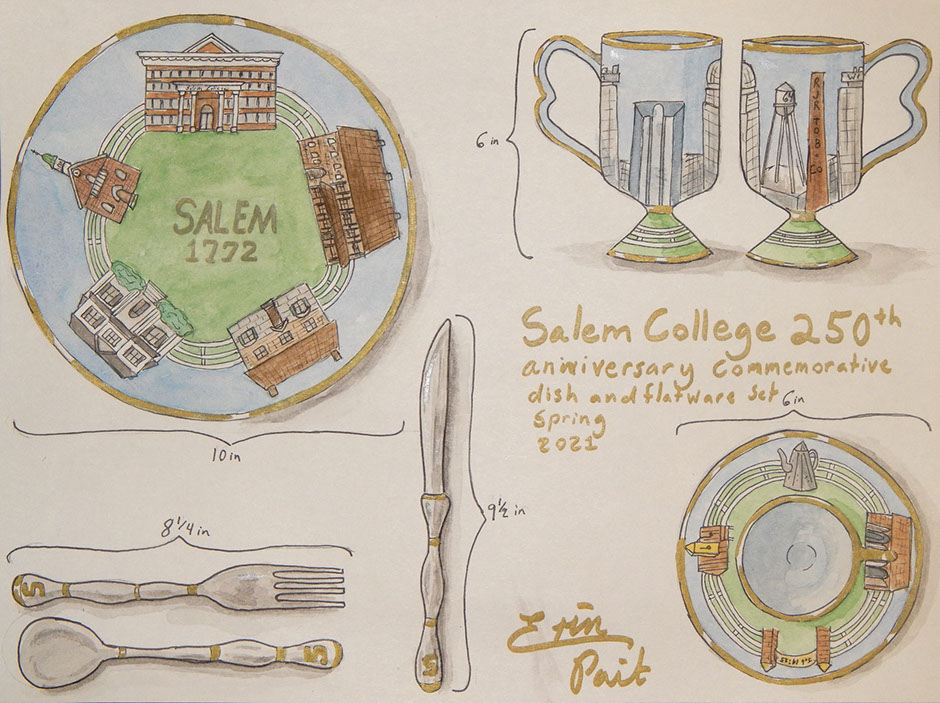 SALEM
1772
10 in
6 in
RJR TOB. CO
Salem College 250th
anniversary Commemorative
dish and flatware set
Spring
2021
6 in
8 1/4 in
S
S
9 1/2 in
S
Erin
Pait